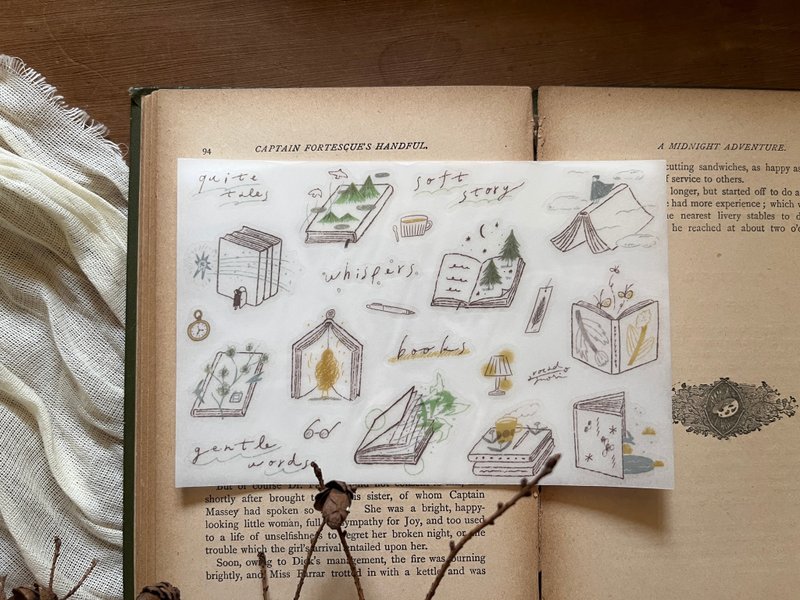 94
CAPTAIN FORTESCUE'S HANDFUL.
quite
tales
soft
story
whispers
books
gentle
words
But of course Dr.
shortly after brought
is sister, of whom Captain
Massey had spoken so
She was a bright, happy-
looking little woman, full
sympathy for Joy, and too used
to a life of unselfishness
regret her broken night, or the
trouble which the girl's arrival entailed upon her.
Soon, owing to Dick's management, the fire was burning
brightly, and Miss Farrar trotted in with a kettle and was
A MIDNIGHT ADVENTURE.
cutting sandwiches, as happy as
f service to others.
longer, but started off to do a
had more experience ; which
nearest livery stables to
he reached at about two o'c